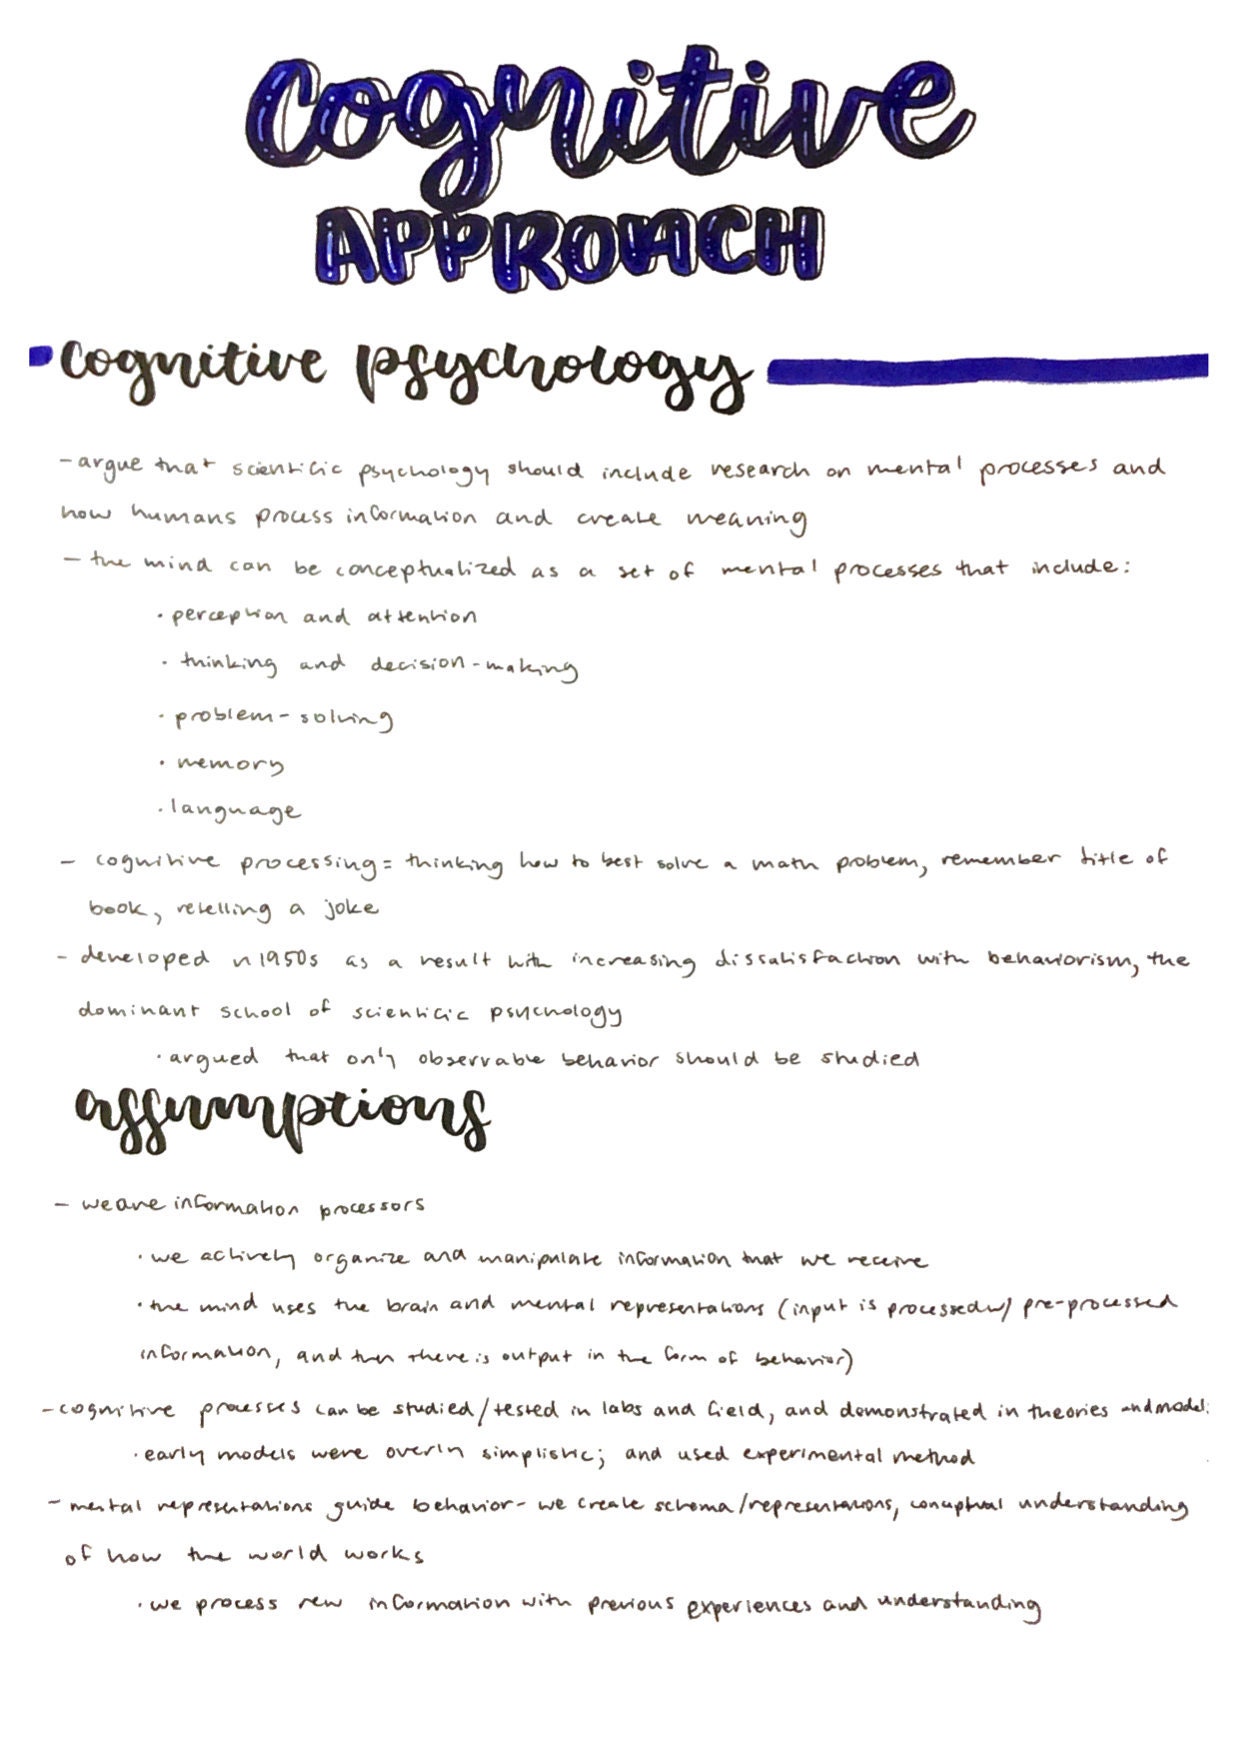 cognitive
APPROACH
cognitive psychology
- argue that scientific psychology should include research on mental processes and
how humans process information and create meaning
- the mind can be conceptualized as a set of mental processes that include:
· perception and attention
· thinking and decision-making
· problem-solving
· memory
· language
- cognitive processing = thinking how to best solve a math problem, remember title of
book, retelling a joke
- developed n 1950s as a result with increasing dissatisfaction with behaviorism, the
dominant school of scientific psychology
· argued that only observable behavior should be studied
assumptions
- we are information processors
· we actively organize and manipulate information that we receive
· the mind uses the brain and mental representations (input is processed w/ pre-processed
information, and then there is output in the form of behavior)
- cognitive processes can be studied/tested in labs and field, and demonstrated in theories and models
· early models were overly simplistic; and used experimental method
- mental representations guide behavior - we create schema/representations, conceptual understanding
of how the world works
· we process new information with previous experiences and understanding